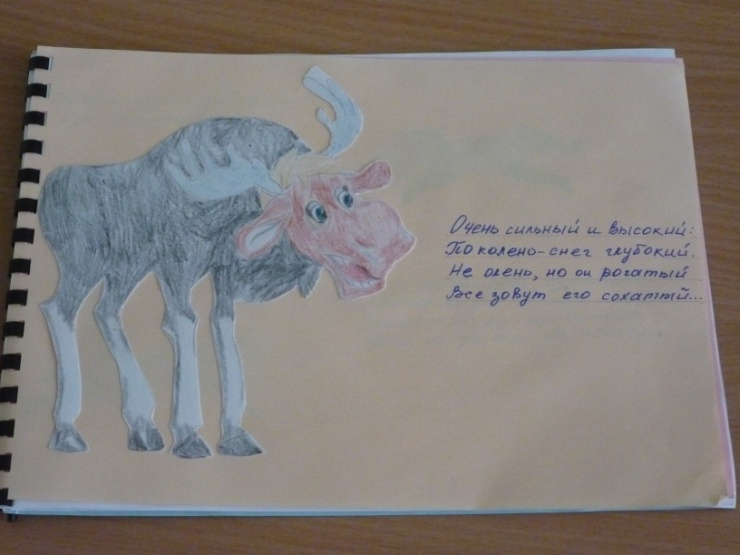 Очень сильный и высокий:
По колено-снег глубокий.
Не олень, но он рогатый
Все зовут его сохатый...